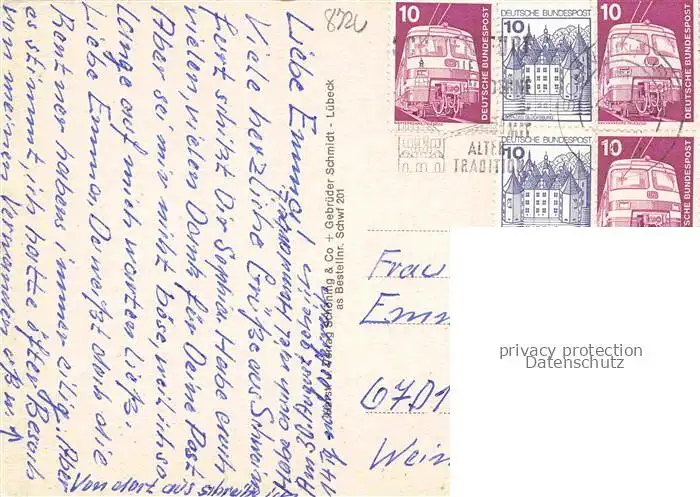 8720
10
DEUTSCHE BUNDESPOST
10
DEUTSCHE BUNDESPOST
SCHLOSS GLÜCKSBURG
10
DEUTSCHE BUNDESPOST
10
DEUTSCHE BUNDESPOST
10
DEUTSCHE BUNDESPOST
ALTER
TRADITION
Liebe Emma!
Viele herzliche Grüße aus Schweinfurt
schickt Dir Sophia. Habe auch
vielen, vielen Dank für Deine Post
Aber sei mir nicht böse, weil ich so
lange auf mich warten ließ.
Liebe Emma, Du weißt doch die
Rentner habens immer eilig. Aber
es stimmt, ich hatte öfter Besuch
von meinen Verwandten
Von dort aus
Verlag Schöning & Co + Gebrüder Schmidt - Lübeck
as Bestellnr. Schwf 201
Frau
Emm
6701
Wein
privacy protection
Datenschutz